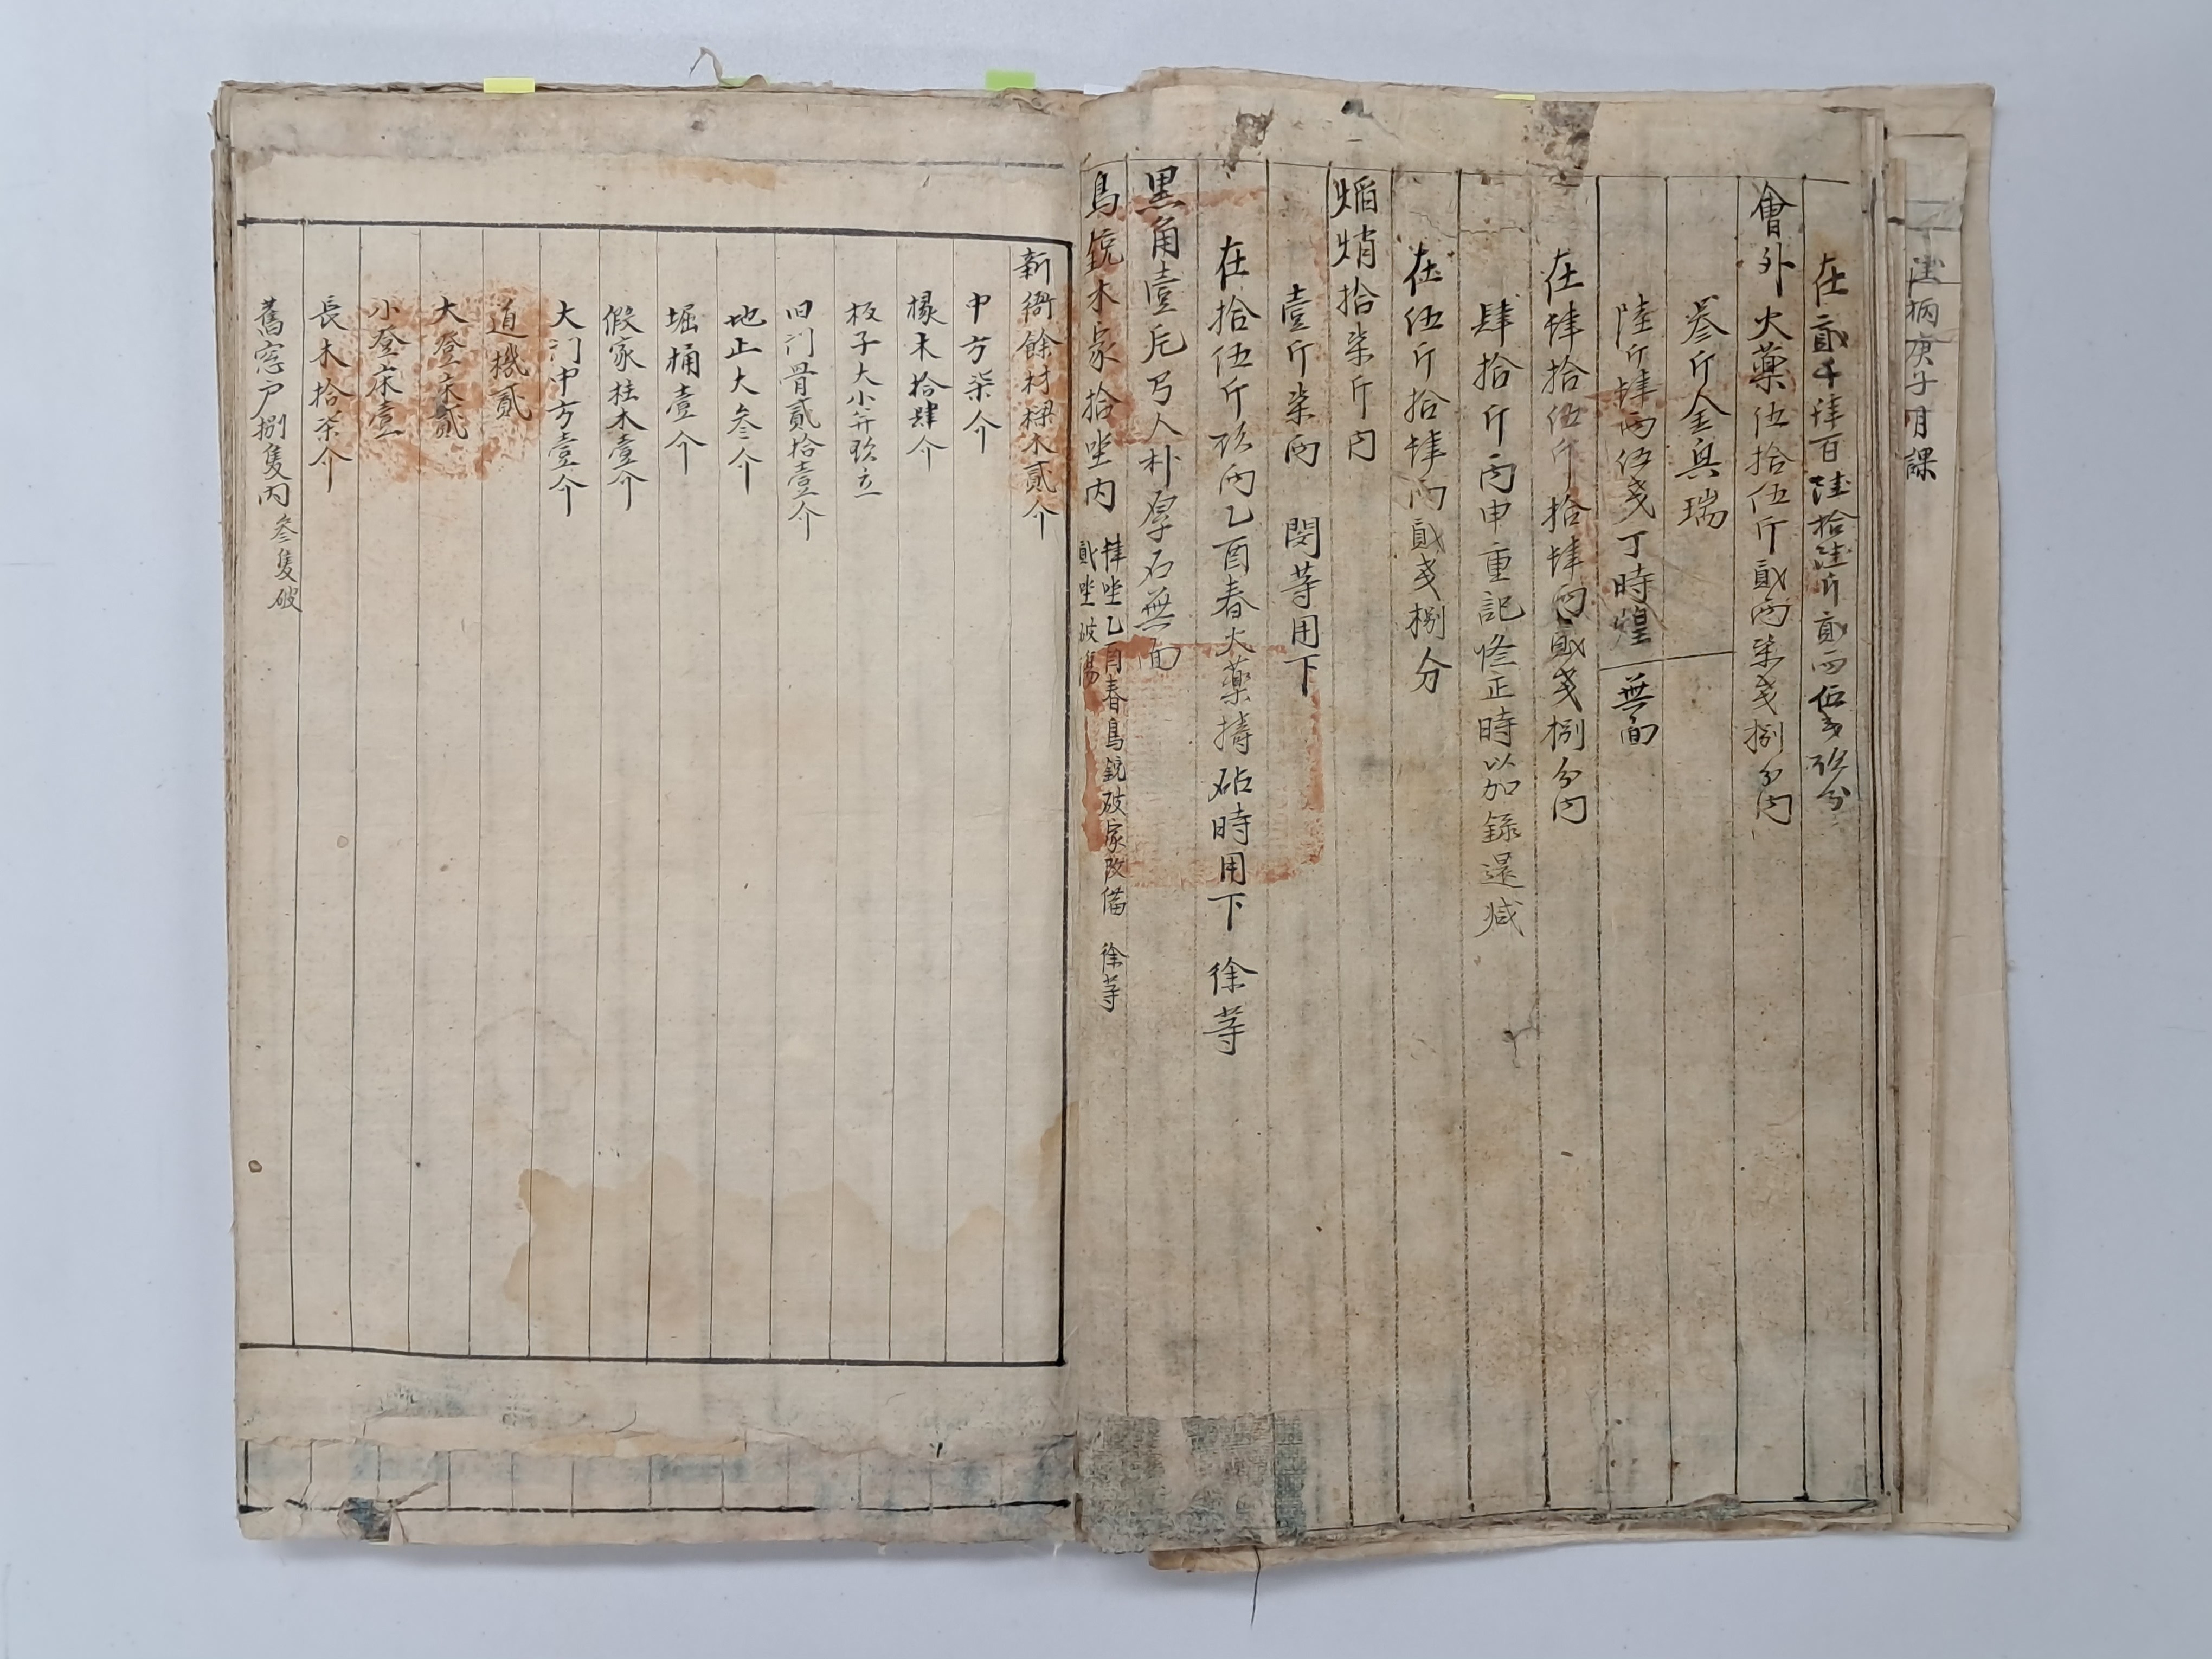 柄庚子月課
在貳千肆百陸拾陸斤貳兩伍戔玖分
會外火藥伍拾伍斤貳兩柒戔捌分內
參斤金與瑞
陸斤肆兩伍戔丁時煌 無面
在肆拾伍斤拾肆兩貳戔捌分內
肆拾斤丙申重記修正時加錄還减
在伍斤拾肆兩貳戔捌分
焰焇拾柒斤內
壹斤柒兩 閔等用下
在拾伍斤玖兩乙酉春火藥擣砧時用下 徐等
黑角壹尼弓人朴厚石無面
鳥銃木家拾坐內 肆坐乙酉春鳥銃破家改備 徐等
貳坐破傷
新衙餘材樑木貳介
中方柒介
椽木拾肆介
板子大小并玖立
旧门骨貳拾壹介
地止大叁介
堀桶壹介
假家柱木壹介
大门中方壹介
道機貳
大登床貳
小登床壹
長木拾柒介
舊窓戶捌隻內 叁隻破